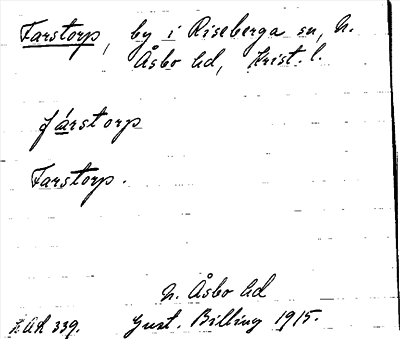 Farstorp, by i Riseberga sn, N.
Åsbo hd, Krist. l.
fárstorp
Farstorp.
N. Åsbo hd
339. Gust. Billing 1915.